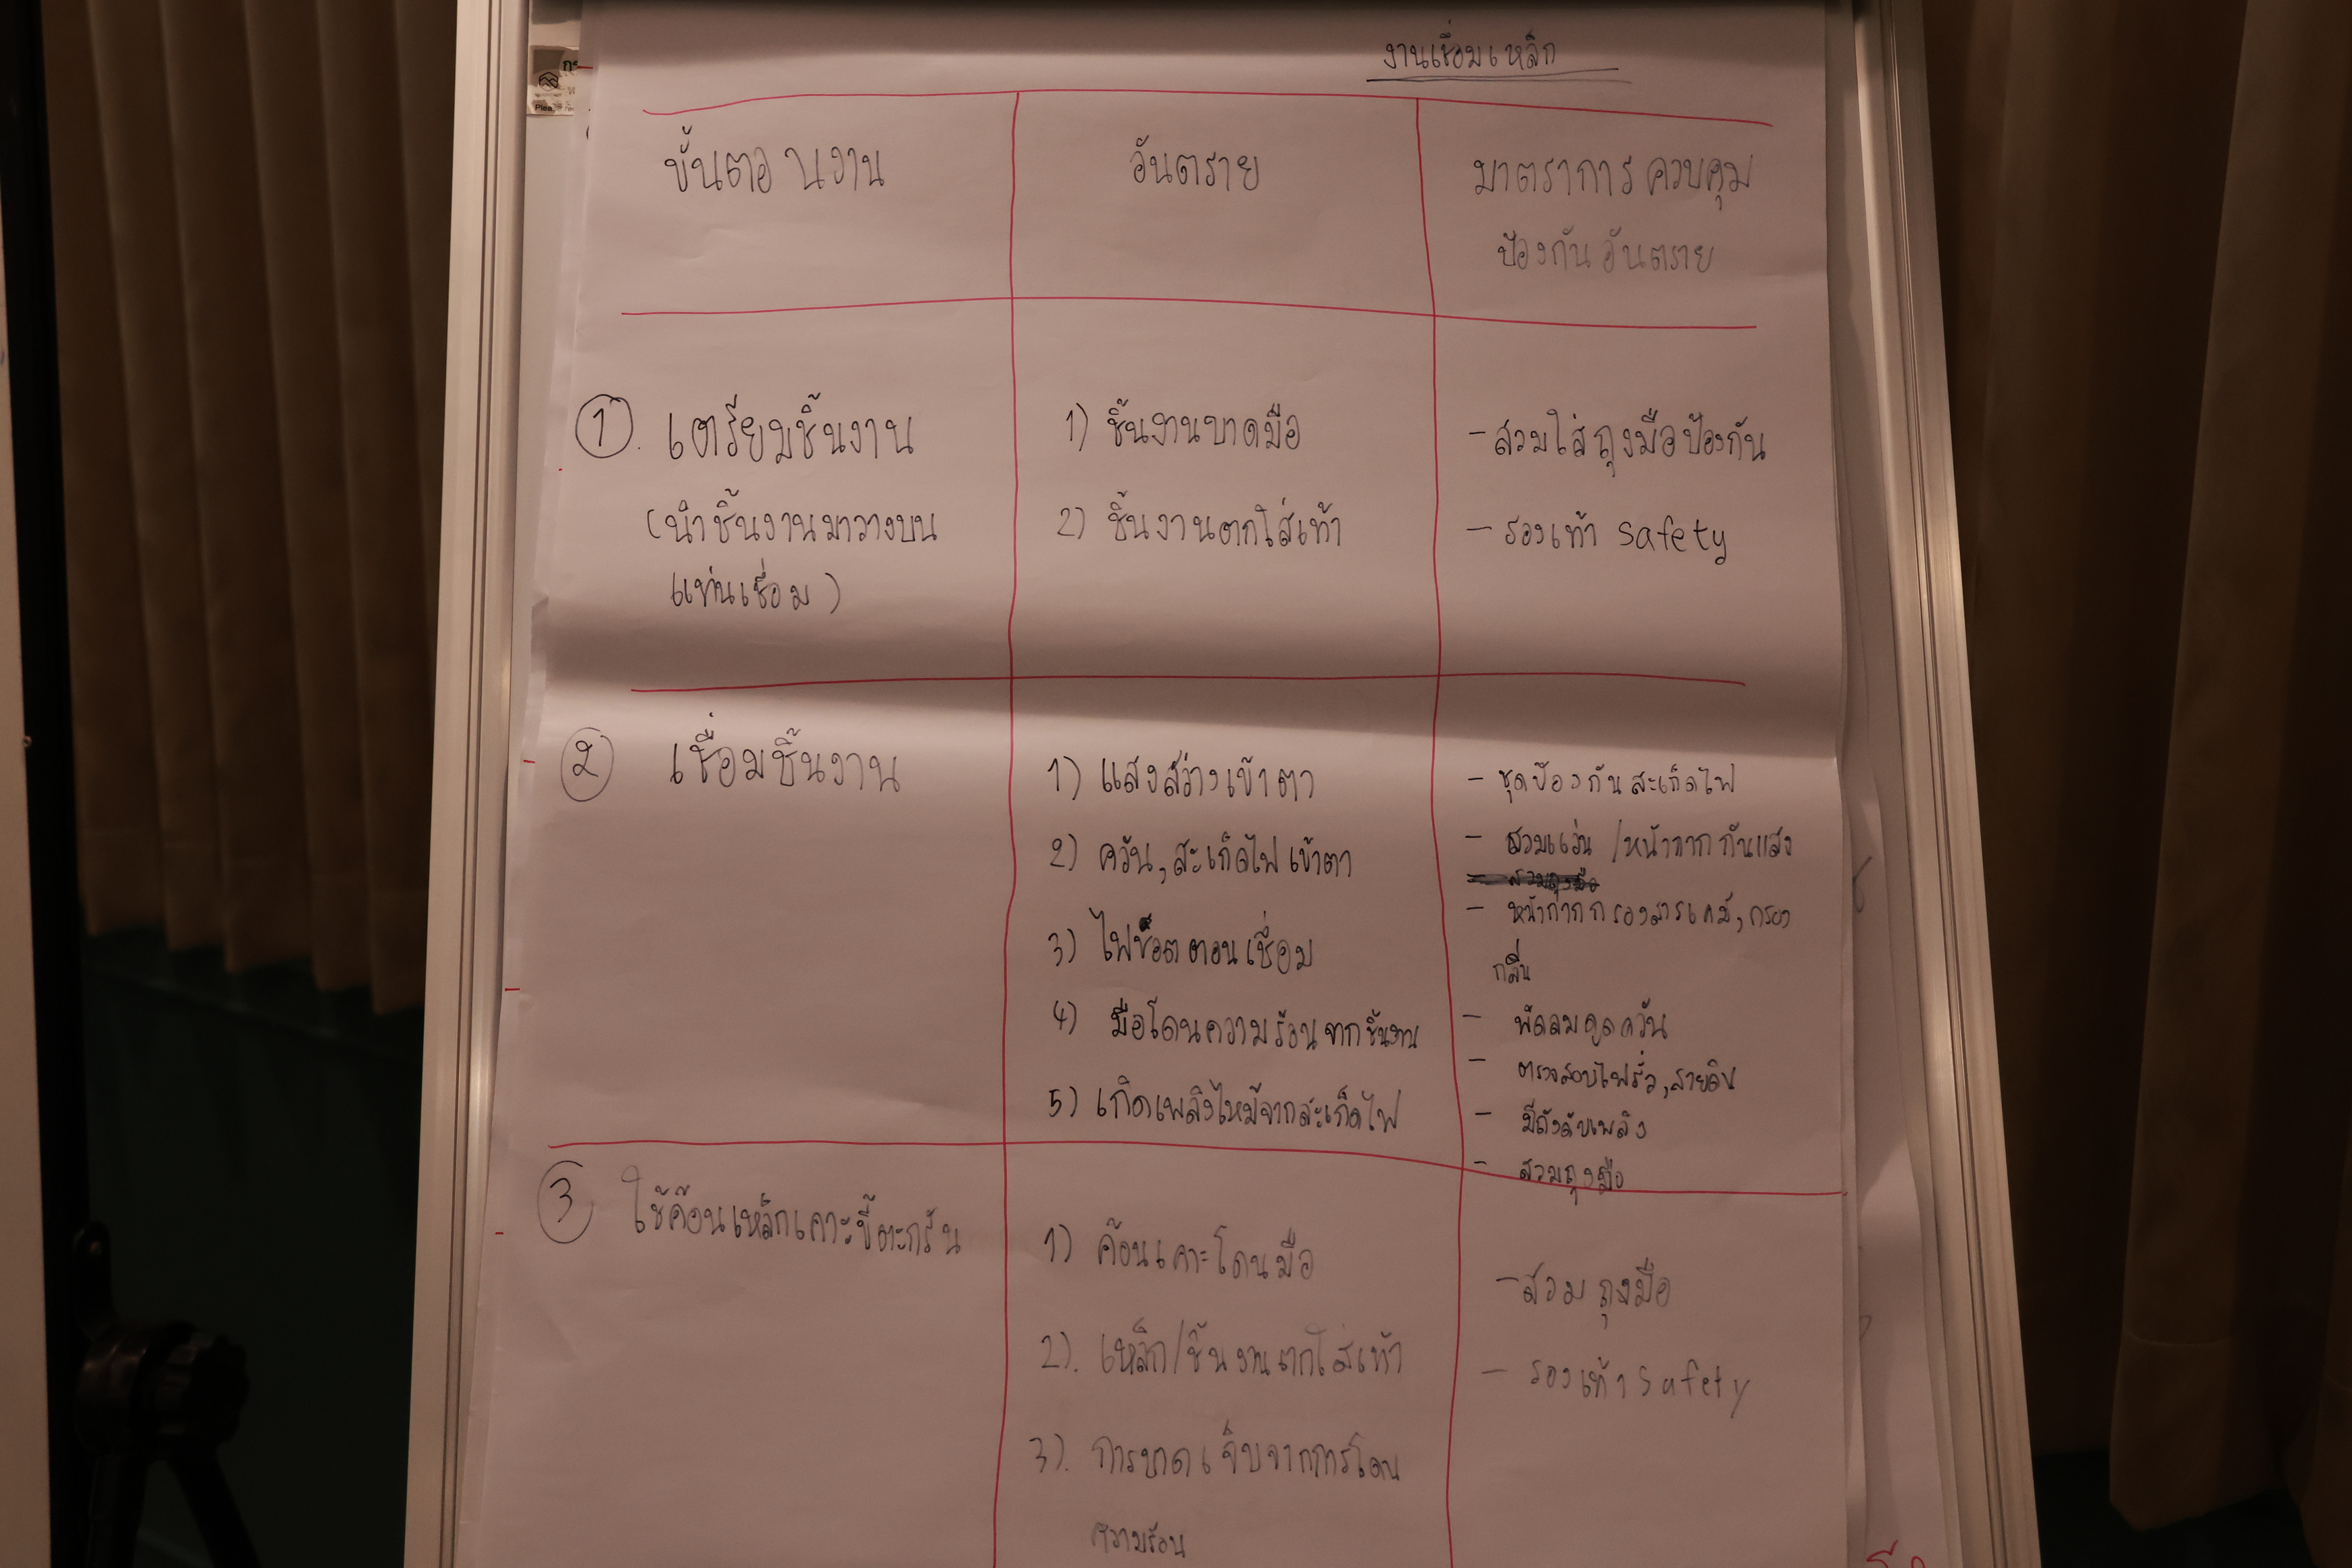 งานเชื่อมเหล็ก
ขั้นตอนงาน
อันตราย
มาตราการควบคุม
ป้องกันอันตราย
① เตรียมชิ้นงาน
(นำชิ้นงานมาวางบน
แท่นเชื่อม)
1) ชิ้นงานบาดมือ
2) ชิ้นงานตกใส่เท้า
- สวมใส่ถุงมือป้องกัน
- รองเท้า safety
② เชื่อมชิ้นงาน
1) แสงสว่างเข้าตา
2) ควัน, สะเก็ดไฟเข้าตา
3) ไฟช็อตตอนเชื่อม
4) มือโดนความร้อนจากชิ้นงาน
5) เกิดเพลิงไหม้จากสะเก็ดไฟ
- ชุดป้องกันสะเก็ดไฟ
- สวมแว่น /หน้ากากกันแสง
- สวมถุงมือ
- หน้ากากกรองสารเคมี, กรอง
กลิ่น
- พัดลมดูดควัน
- ตรวจสอบไฟรั่ว, สายดิน
- มีถังดับเพลิง
- สวมถุงมือ
③ ใช้ค้อนเหล็กเคาะขี้ตะกรัน
1) ค้อนเคาะโดนมือ
2). เหล็ก/ชิ้นงานตกใส่เท้า
3). การบาดเจ็บจากการโดน
ความร้อน
- สวมถุงมือ
- รองเท้า safety